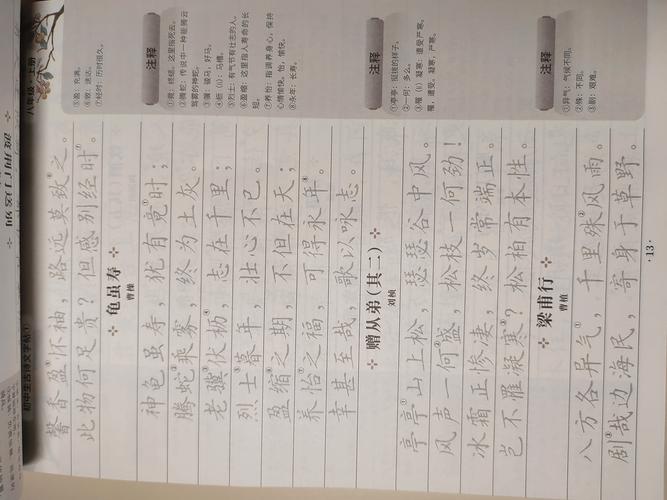 八年级 上册
初中生古诗文字帖
馨香盈⑤怀袖，路远莫致⑥之。
此物何足贵？但感别经时⑦。
⑤盈：充满。
⑥致：送达。
⑦经时：历时很久。
龟虽寿
曹操
神龟虽寿，犹有竟①时；
腾蛇②乘雾，终为土灰。
老骥③伏枥④，志在千里；
烈士⑤暮年，壮心不已。
盈缩⑥之期，不但在天；
养怡⑦之福，可得永年⑧。
幸甚至哉，歌以咏志。
注释
①竟：终结，这里指死去。
②腾蛇：传说中一种能腾云
驾雾的神蛇。
③骥：骏马，好马。
④枥（lì）：马槽。
⑤烈士：有气节有壮志的人。
⑥盈缩：这里指人寿命的长
短。
⑦养怡：指调养身心，保持
心情愉快。怡，愉快。
⑧永年：长寿。
赠从弟（其二）
刘桢
亭亭①山上松，瑟瑟谷中风。
风声一何②盛，松枝一何劲！
冰霜正惨凄，终岁常端正。
岂不罹凝寒③？松柏有本性。
注释
①亭亭：挺拔的样子。
②一何：多么。
③罹（lí）凝寒：遭受严寒。
罹，遭受。凝寒，严寒。
梁甫行
曹植
八方各异气①，千里殊②风雨。
剧③哉边海民，寄身于草野。
注释
①异气：气候不同。
②殊：不同。
③剧：艰难。
·13·